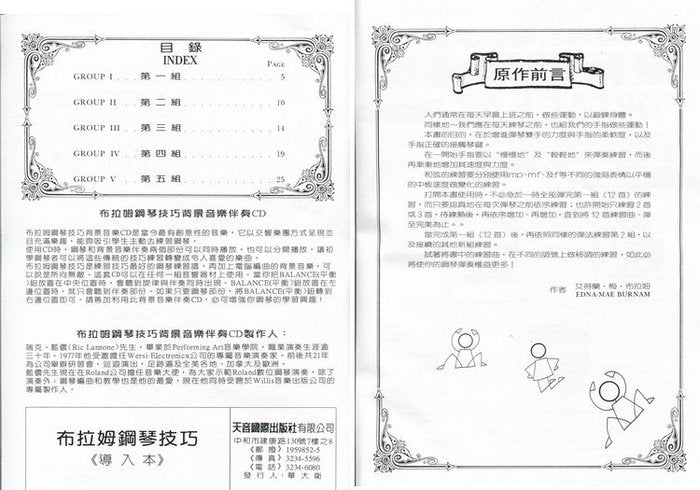 目錄
INDEX
PAGE
GROUP I . . . 第一組 . . . 5
GROUP II . . . 第二組 . . . 10
GROUP III . . . 第三組 . . . 14
GROUP IV . . . 第四組 . . . 19
GROUP V . . . 第五組 . . . 25
布拉姆鋼琴技巧背景音樂伴奏CD
布拉姆鋼琴技巧背景音樂伴奏CD是當今最有創意性的音樂，它以交響樂團方式呈現並
且充滿樂趣，能夠吸引學生主動去練習鋼琴。
使用CD時，鋼琴和背景音樂伴奏兩個部份可以同時播放，也可以分開播放，讓初
學鋼琴者可以將這些傳統的技巧練習轉變成令人喜愛的樂曲。
布拉姆鋼琴技巧是練習技巧最好的鋼琴練習譜，再加上電腦編曲的背景音樂，可
以說是所向無敵。這套CD可以在任何一組音響器材上使用。當你把BALANCE(平衡)
鈕放置在中央位置時，會聽到旋律與伴奏同時出現，BALANCE(平衡)鈕放置在左
邊位置時，就只會聽到伴奏部份。如果只要鋼琴部份，將BALANCE(平衡)鈕轉到
右邊位置即可。請善加利用此背景音樂伴奏CD，必可增強你鋼琴的學習興趣！
布拉姆鋼琴技巧背景音樂伴奏CD製作人：
瑞克．藍儂(Ric Iannone)先生，畢業於Performing Art音樂學院，職業演奏生涯逾
三十年，1977年他受邀擔任Wersi Electronics公司的專屬音樂演奏家，前後共21年
為公司舉辦研習會，巡迴演出，足跡遍及全美各地、加拿大及歐洲。
藍儂先生現在在Roland公司擔任音樂大使，為大家示範Roland數位鋼琴演奏，除了
演奏外；鋼琴編曲和教學也是他的最愛，現在他同時受聘於Willis音樂出版公司的
專屬製作人。
布拉姆鋼琴技巧
《導入本》
天音國際出版社有限公司
中和市建康路130號7樓之8
《郵撥》1959852-5
《傳真》3234-5596
《電話》3234-6080
發行人：華大衛
原作前言
人們通常在每天早晨上班之前，做些運動，以鍛鍊身體。
同樣地～我們應在每天練琴之前，也給我們的手指做些運動！
本書的目的，在於增進彈琴雙手的力度與手指的柔軟度，以及
手指正確的接觸琴鍵。
在一開始手指要以〝慢慢地〞及〝輕輕地〞來彈奏練習，而後
再漸漸地增加其速度與力度。
和弦的練習要分別使用mp、mf、及f等不同的強弱表情以平穩
的中板速度做變化的練習。
打開本書使用時，不必急於一時全部彈完第一組（12首）的練
習，而只要認真地在每次彈琴之前依序練習；也許開始只練習2首
或3首，待練熟後，再依序增加、再增加，直到將12首練習曲，彈
至完美為止。
當完成第一組（12首）後，再依照同樣的彈法練習第2組，以
及接續的其他新組練習。
試著將書中的練習曲，在不同的調號上做移調的練習，如此必
將使你的鋼琴彈奏獲益更多！
作者 艾得蘭・梅・布拉姆
EDNA-MAE BURNAM